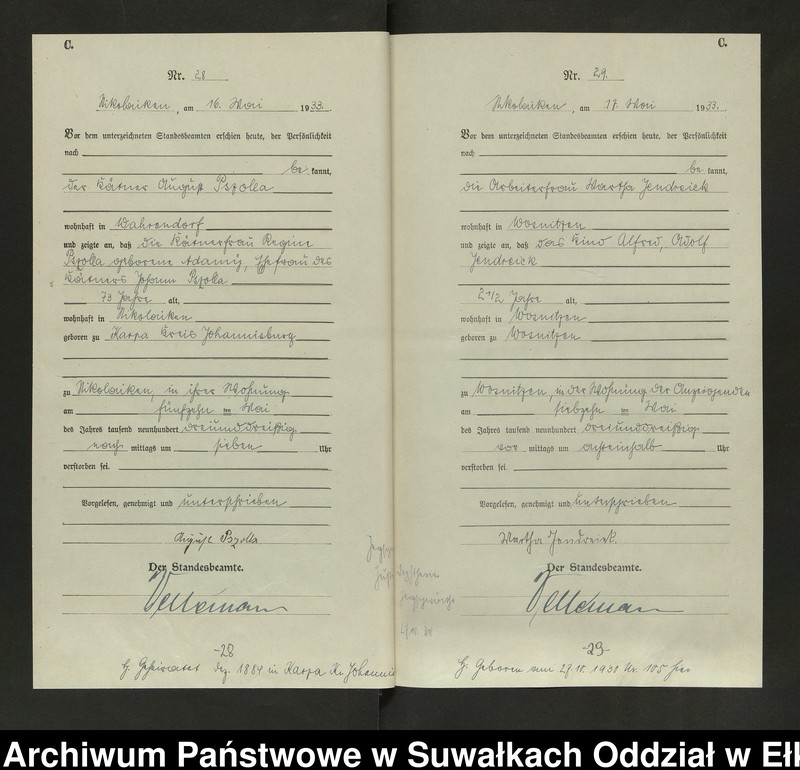 C.
Nr. 28
Nikolaiken, am 16. Mai 1933.
Vor dem unterzeichneten Standesbeamten erschien heute, der Persönlichkeit
nach
be kannt,
der Kätner August Pszolla
wohnhaft in Wahrendorf
und zeigte an, daß die Kätnerfrau Regine
Pszolla geborene Adamy, Ehefrau des
Kätners Johann Pszolla
73 Jahre alt,
wohnhaft in Nikolaiken
geboren zu Karpa Kreis Johannisburg
zu Nikolaiken, in ihrer Wohnung
am fünfzehn ten Mai
des Jahres tausend neunhundert dreiunddreißig
nach mittags um sieben Uhr
verstorben sei.
Vorgelesen, genehmigt und unterschrieben
August Pszolla
Der Standesbeamte.
-28
G. Geheiratet Dez. 1884 in Karpa Kr. Johannis
C.
Nr. 29.
Nikolaiken, am 17. Mai 1933.
Vor dem unterzeichneten Standesbeamten erschien heute, der Persönlichkeit
nach
be kannt,
die Arbeiterfrau Martha Jendreieck
wohnhaft in Wosnitzen
und zeigte an, daß das Kind Alfred, Adolf
Jendreieck
2 1/2 Jahre alt,
wohnhaft in Wosnitzen
geboren zu Wosnitzen
zu Wosnitzen, in der Wohnung der Anzeigenden
am siebzehn ten Mai
des Jahres tausend neunhundert dreiunddreißig
vor mittags um achteinhalb Uhr
verstorben sei.
Vorgelesen, genehmigt und unterschrieben
Martha Jendreieck.
Der Standesbeamte.
-29-
G. Geboren am 29.10.1930 Nr. 105 hier
Archiwum Państwowe w Suwałkach Oddział w Ełk